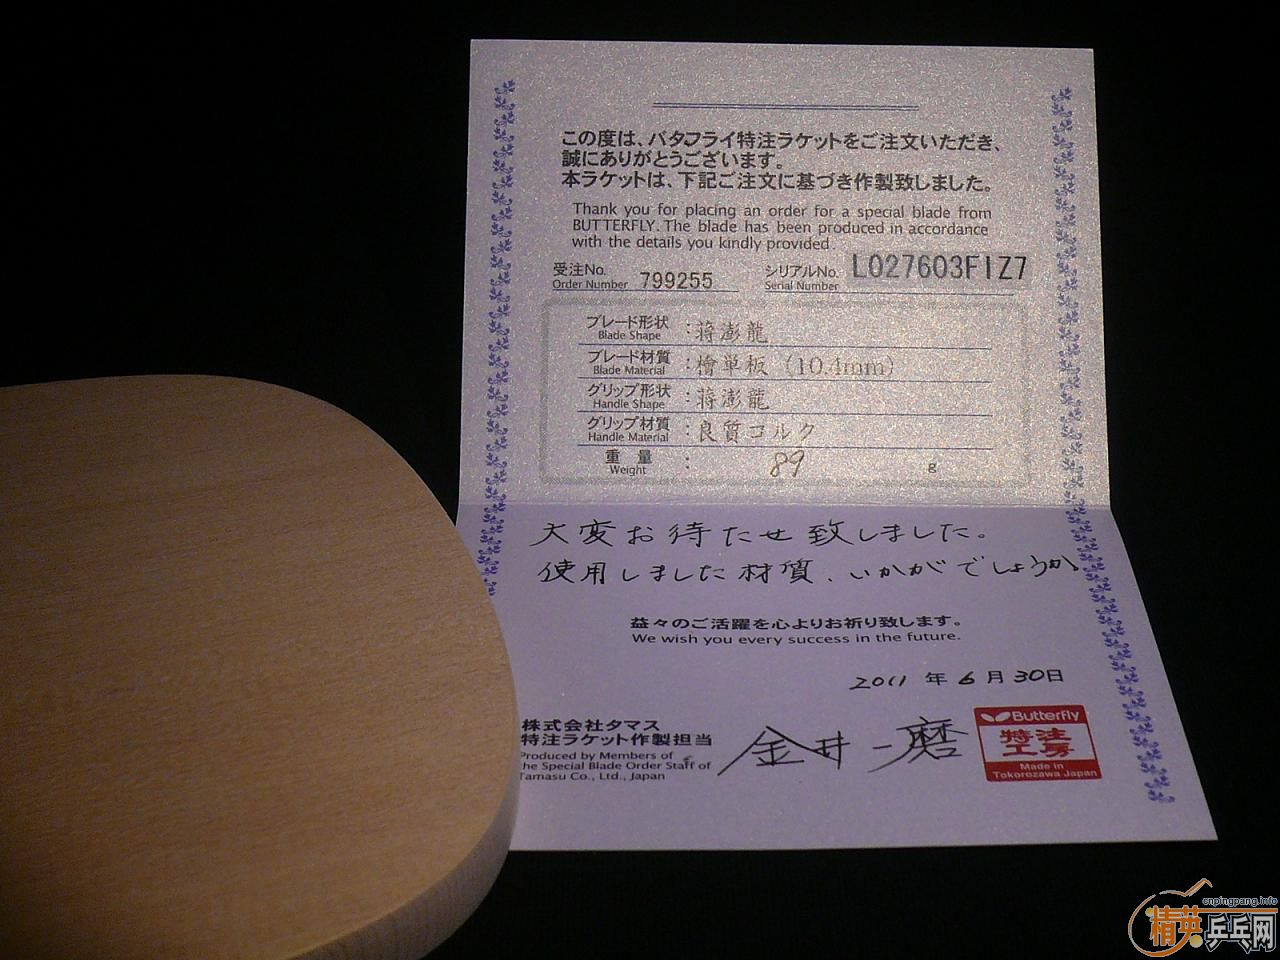 この度は、バタフライ特注ラケットをご注文いただき、
誠にありがとうございます。
本ラケットは、下記ご注文に基づき作製致しました。
Thank you for placing an order for a special blade from
BUTTERFLY. The blade has been produced in accordance
with the details you kindly provided.
受注No. 799255 シリアルNo. L027603F1Z7
Order Number Serial Number
ブレード形状 : 蒋澎龍
Blade Shape
ブレード材質 : 檜単板 (10.4mm)
Blade Material
グリップ形状 : 蒋澎龍
Handle Shape
グリップ材質 : 良質コルク
Handle Material
重量 : 89 g
Weight
大変お待たせ致しました。
使用しました材質、いかがでしょうか
益々のご活躍を心よりお祈り致します。
We wish you every success in the future.
2011 年 6 月 30 日
株式会社タマス
特注ラケット作製担当 金井一磨
Produced by Members of
the Special Blade Order Staff of
Tamasu Co., Ltd., Japan
Butterfly
特注
工房
Made in
Tokorozawa Japan
cnpingpang.info
精英乒乓网